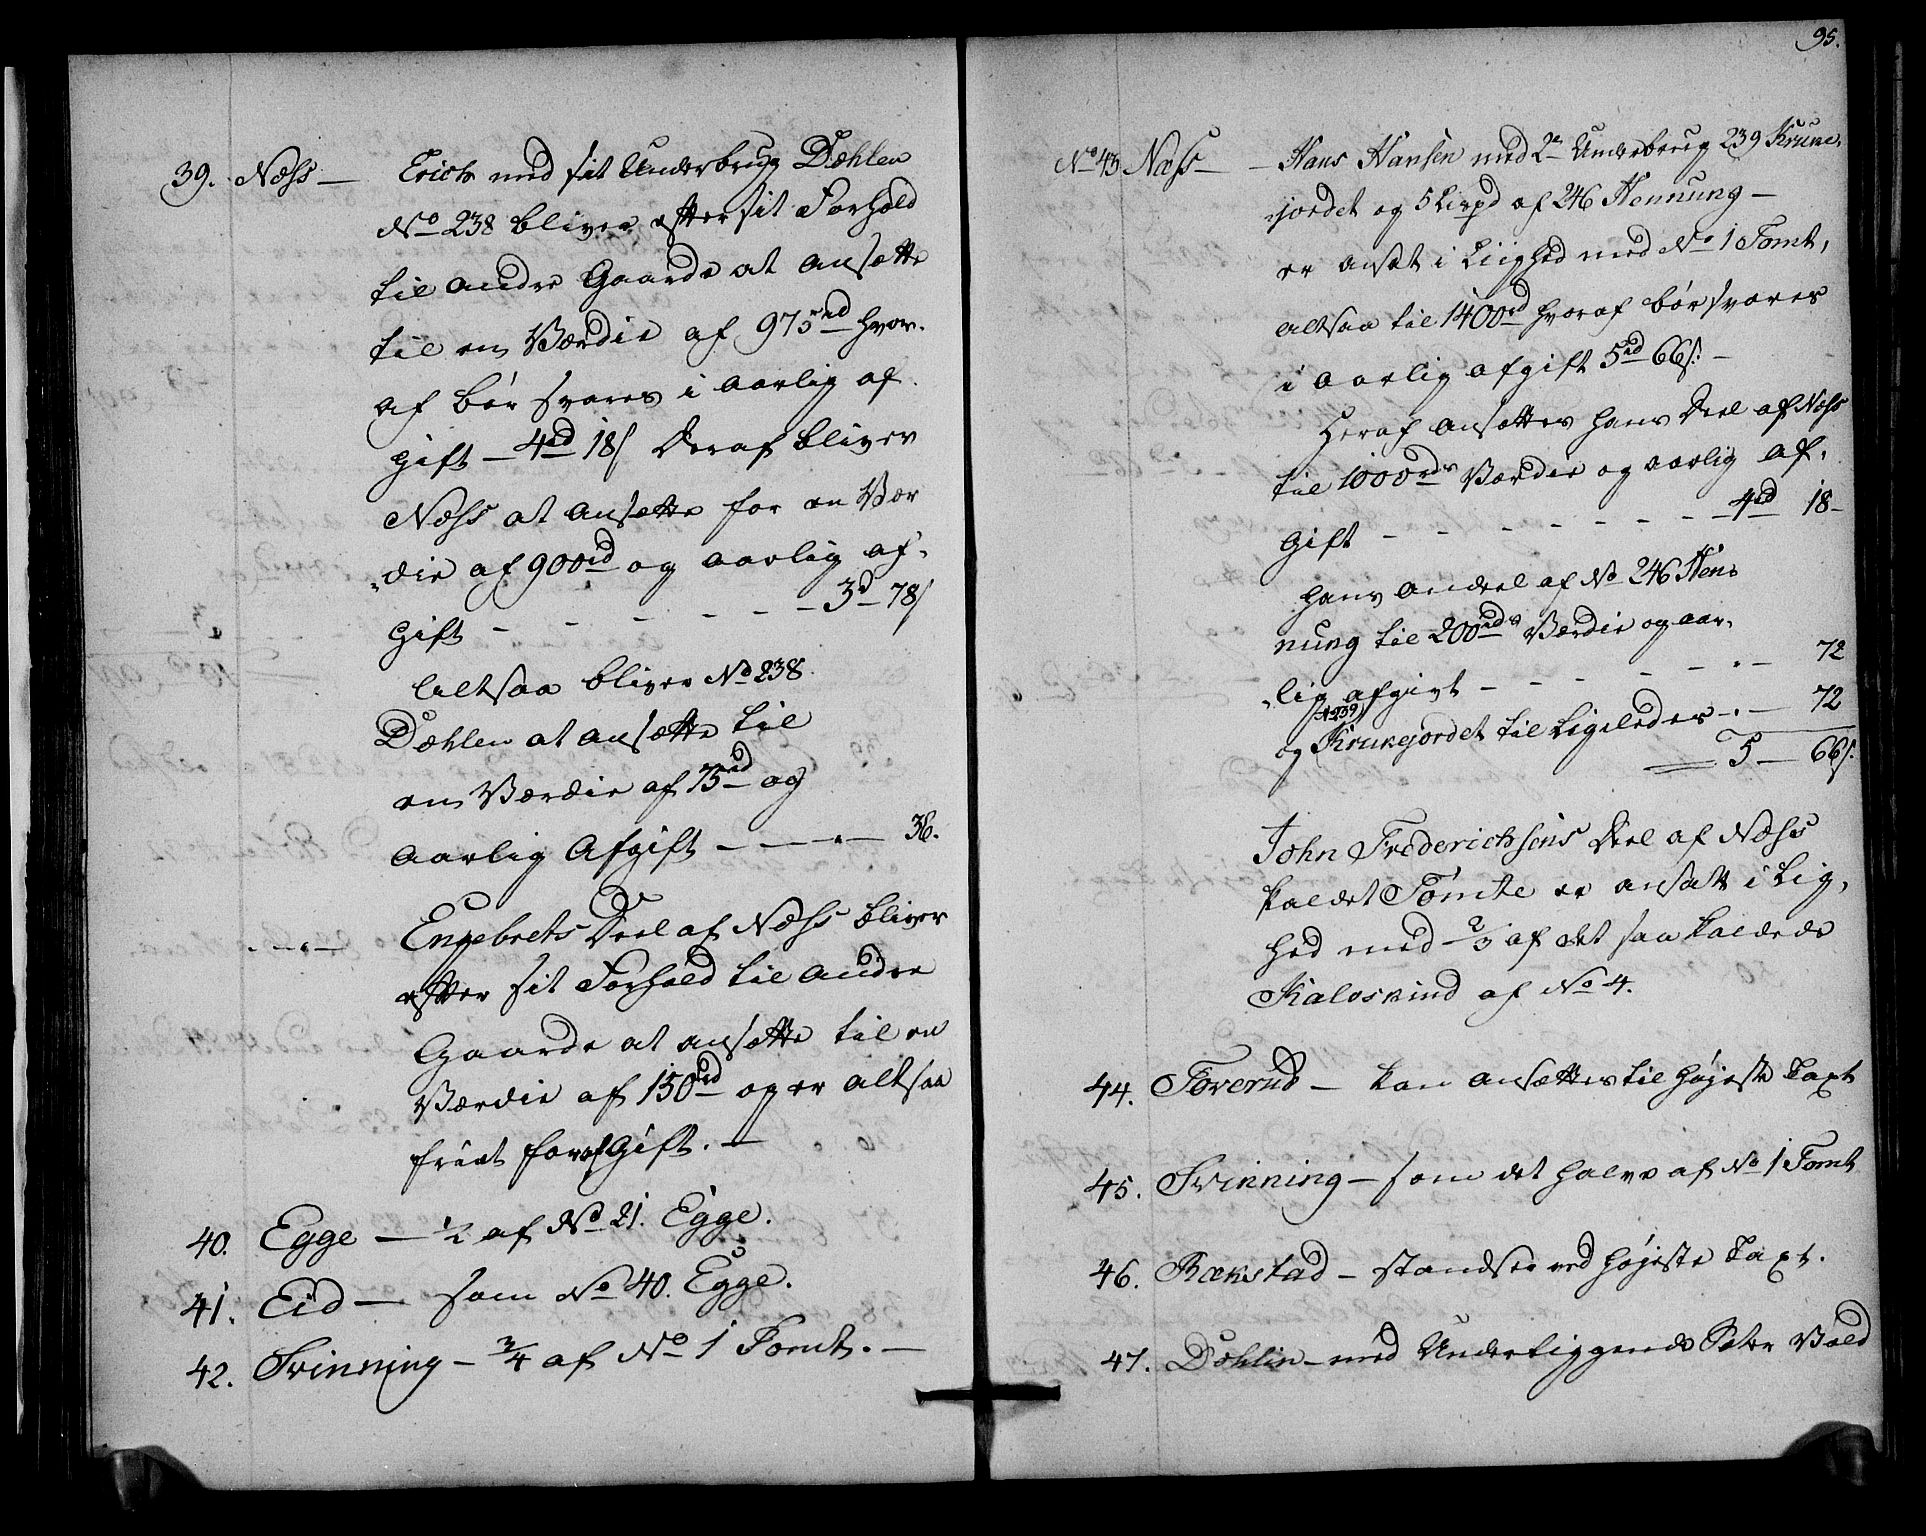 39. Næss — Erich med sit Underbrug Dæhlen
No 238 bliver efter sit Forhold
til andre Gaarde at ansætte
til en Værdie af 975 rd hvor-
af bør svares i aarlig af-
gift — 4 rd 18 s Deraf bliver
Næss at ansætte for en Vær
„die af 900 rd og aarlig af-
gift — — — — — 3 d 78 s
Altsaa bliver No 238
Dæhlen at ansætte til
en Værdie af 75 rd og
aarlig Afgift — — „ — 36.
— „ — Engebrets Deel af Næss bliver
efter sit Forhold til andre
Gaarde at ansætte til en
Værdie af 150 rd og er altsaa
friet for afGift. —
40. Egge — 1/2 af No 21. Egge.
41. Eid — som No 40. Egge.
42. Svinning — 3/4 af No 1 Tomt. —
95.
No 43 Næss — Hans Hansen med 2de Underbrug 239 Krune-
„jordet og 5 Lispd af 246 Hennung —
er ansat i Liighed med No 1 Tomt,
altsaa til 1400 rd hvoraf bør svares
i aarlig afgift 5 rd 66 s. —
Heraf ansættes hans Deel af Næss
til 1000 rds Værdie og aarlig af-
gift — — — — — — 4 rd 18 —
hans Andeel af No 246 Hen-
nung til 200 rds Værdie og aar-
„lig afgivt — — — — — „ — 72
No 239
og Krunejordet til Ligeledes — „ — 72
5 — 66 s.
John Frederichsens Deel af Næss
kaldet Tomte er ansatt i Lig-
hed med 2/3 af det saa kaldede
Kaloskind af No 4.
44. Foverud — kan ansættes til høieste Taxt
45. Svinning — som det halve af No 1 Tomt
46. Rækstad — standser ved høieste Taxt.
47. Dæhlin — med Underliggende Sæter Vold